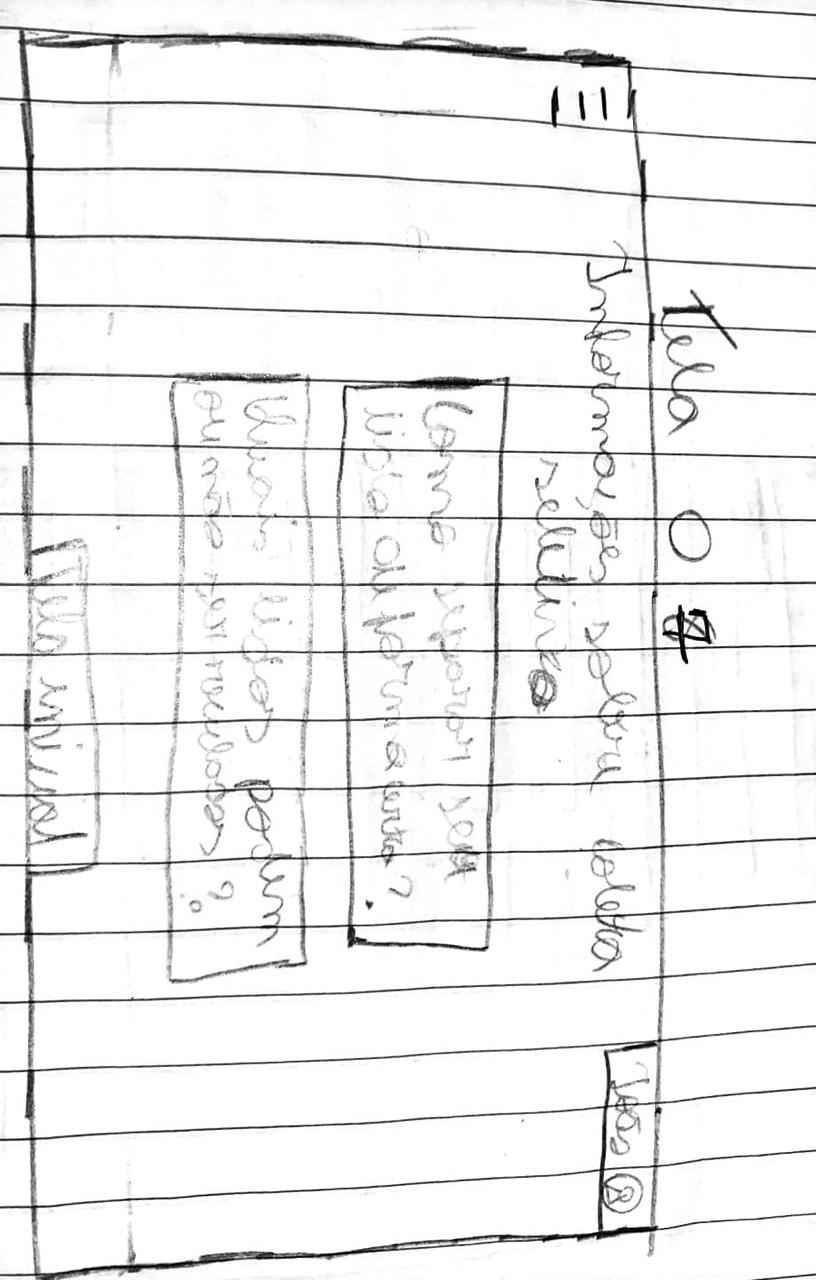 Tela 04
João
Informações sobre coleta
seletiva
Como separar seu
lixo de forma certa?
Quais lixos podem
ou não ser reciclados?
Tela inicial